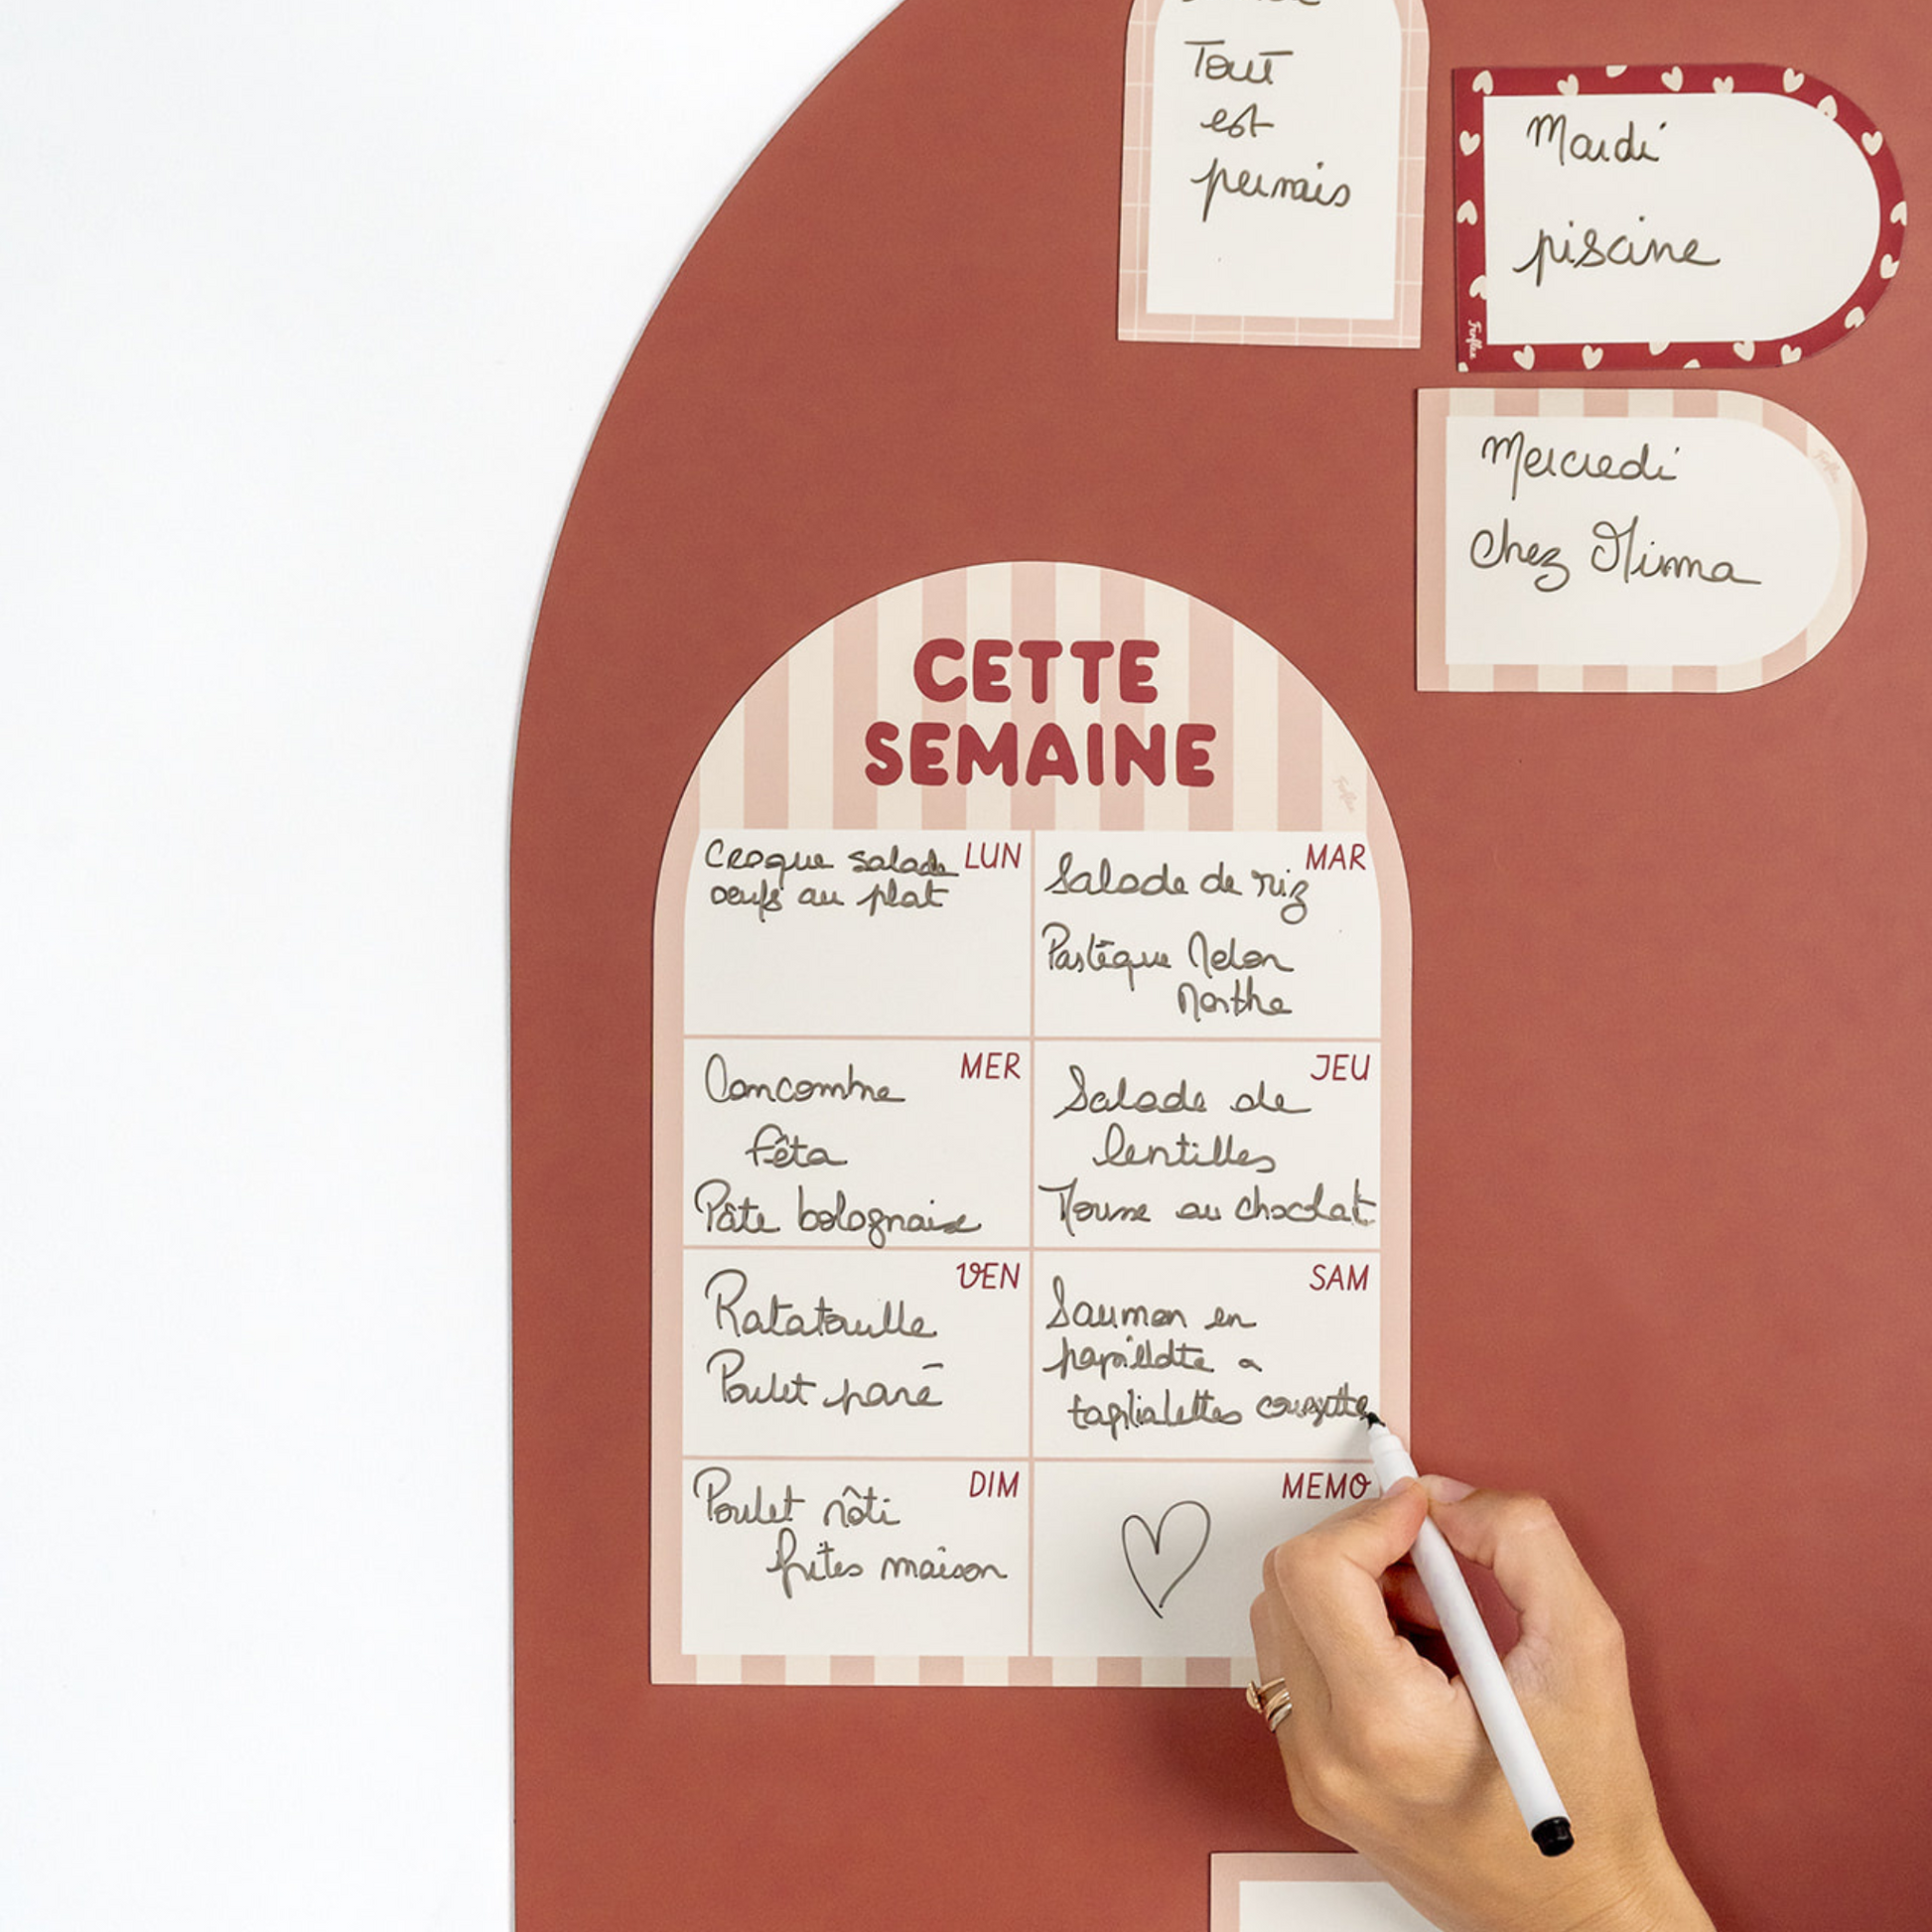 Tout
est
permis
Mardi
piscine
Ferflex
Mercredi
chez Mima
CETTE
SEMAINE
LUN
Croque salade
oeufs au plat
MAR
Salade de riz
Pastèque Melon
Menthe
MER
Concombre
fêta
Pâte bolognaise
JEU
Salade de
lentilles
Mousse au chocolat
VEN
Ratatouille
Poulet pané
SAM
Saumon en
papillote a
taglialettes courgette
DIM
Poulet rôti
frites maison
MEMO